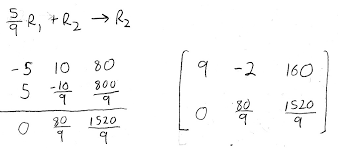 5/9 R₁ + R₂ → R₂
-5 10 80
5 -10/9 800/9
0 80/9 1520/9
[ 9 -2 160
0 80/9 1520/9 ]